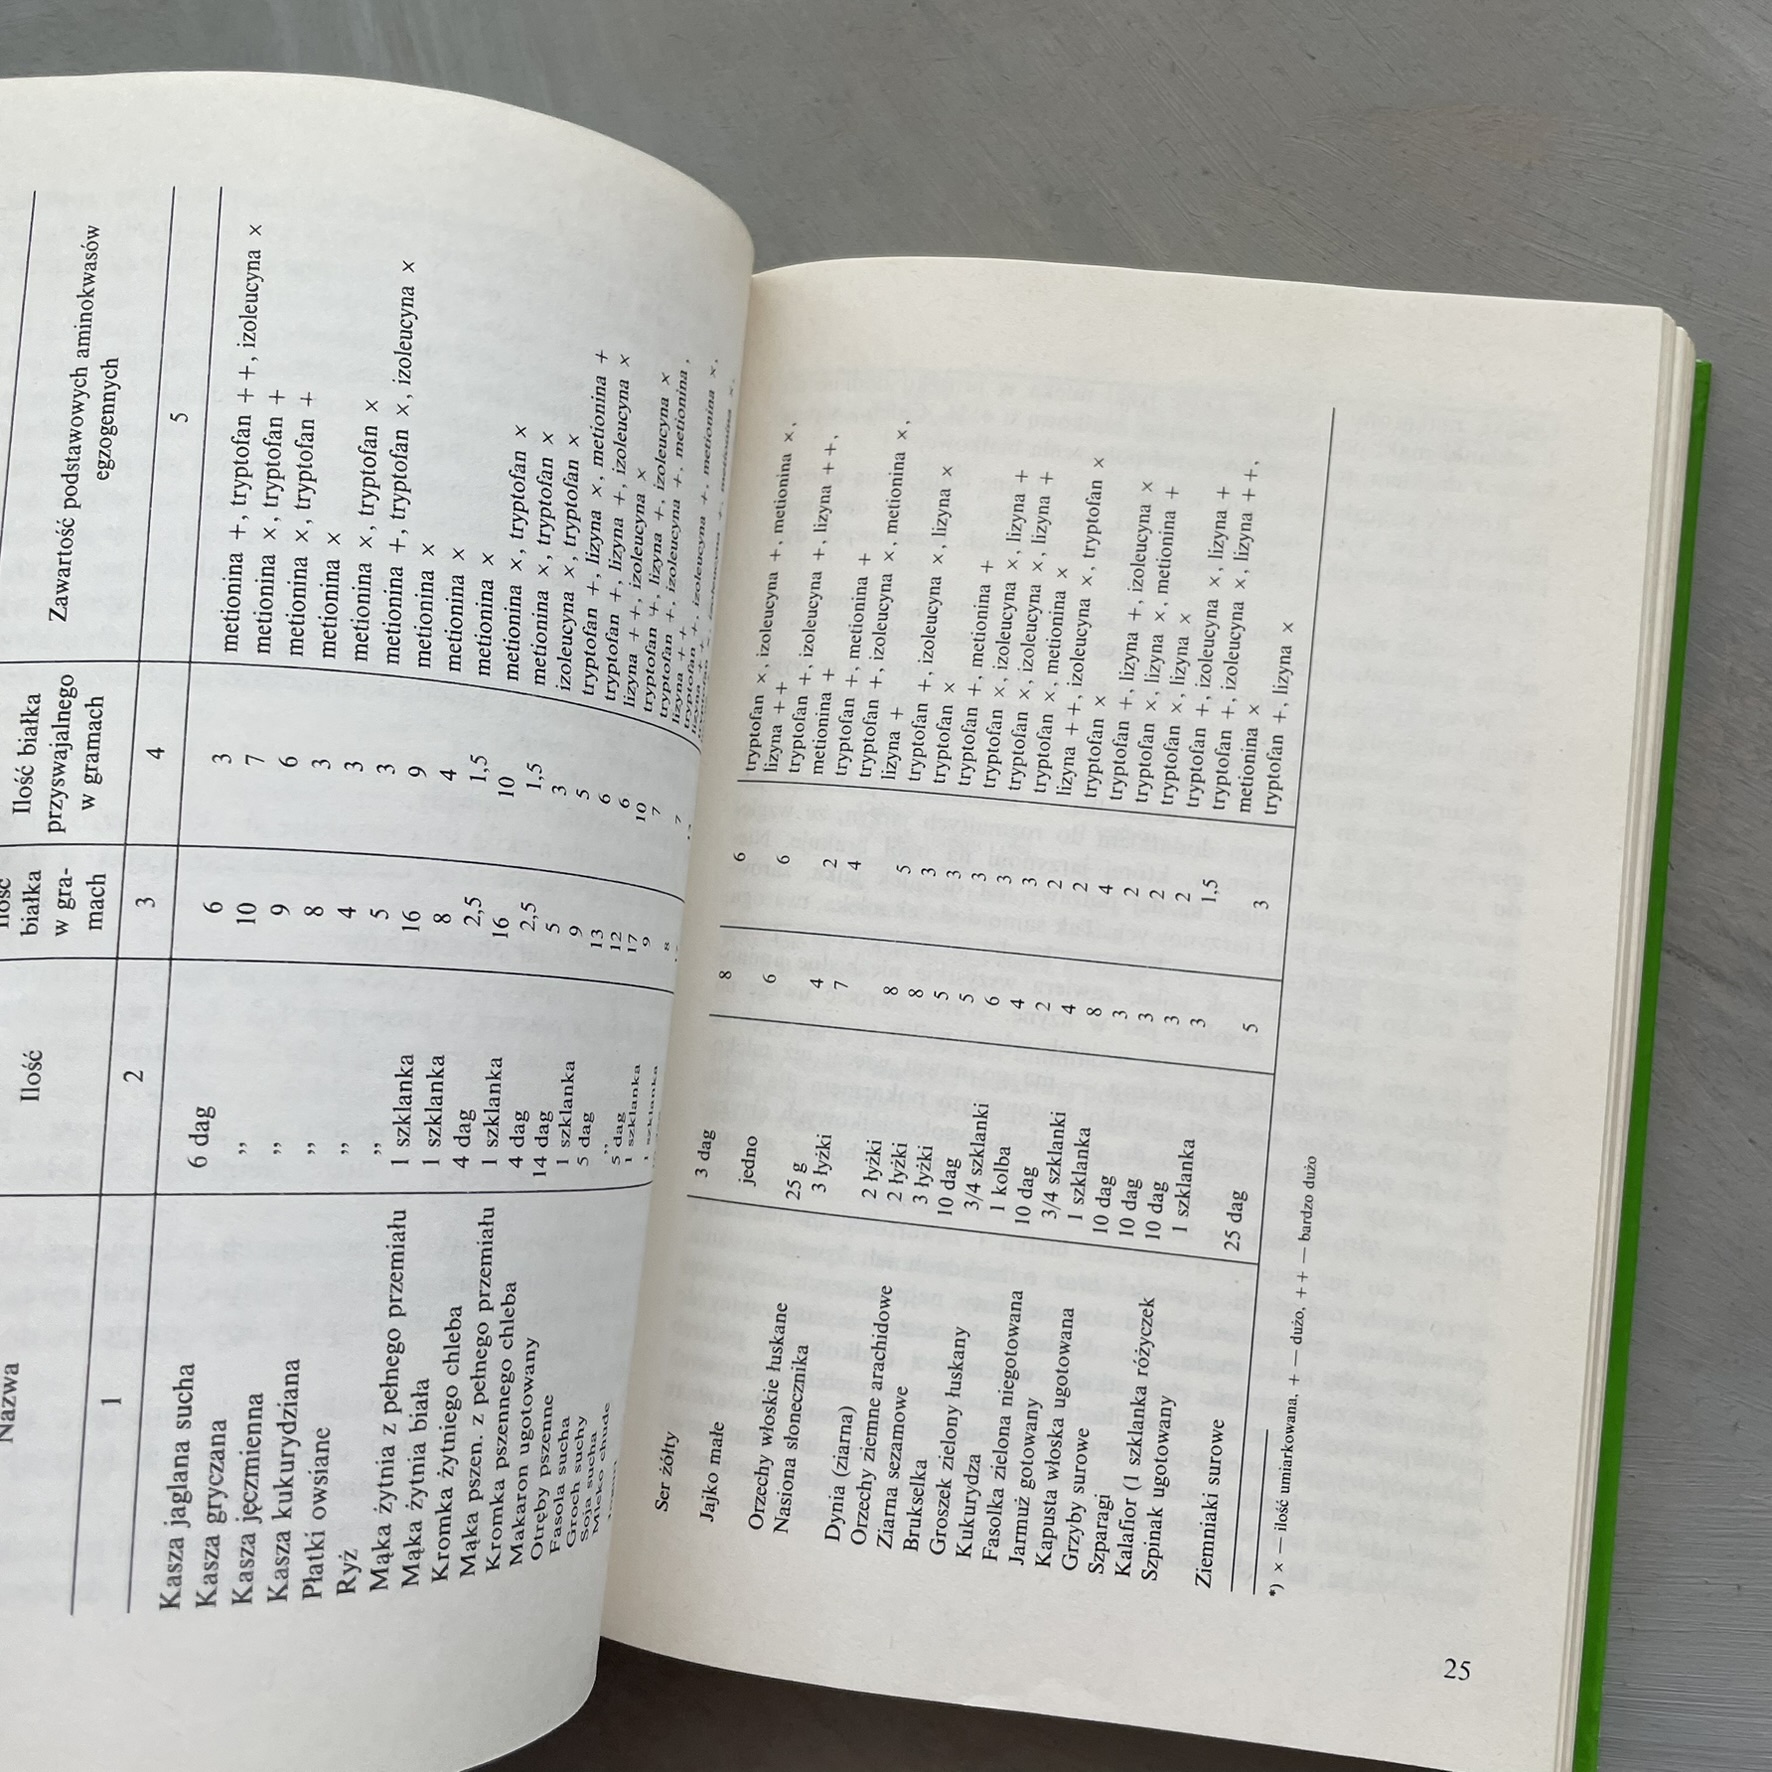 Nazwa Ilość Ilość białka w gra- Ilość białka Zawartość podstawowych aminokwasów
mach przyswajalnego egzogennych
w gramach
1 2 3 4 5
Kasza jaglana sucha 6 dag 6 3 metionina +, tryptofan + +, izoleucyna ×
Kasza gryczana ,, 10 7 metionina ×, tryptofan +
Kasza jęczmienna ,, 9 6 metionina ×, tryptofan +
Kasza kukurydziana ,, 8 3 metionina ×
Płatki owsiane ,, 4 3 metionina ×, tryptofan ×
Ryż ,, 5 3 metionina +, tryptofan ×, izoleucyna ×
Mąka żytnia z pełnego przemiału 1 szklanka 16 9 metionina ×
Mąka żytnia biała 1 szklanka 8 4 metionina ×
Kromka żytniego chleba 4 dag 2,5 1,5 metionina ×
Mąka pszen. z pełnego przemiału 1 szklanka 16 10 metionina ×, tryptofan ×
Kromka pszennego chleba 4 dag 2,5 1,5 metionina ×, tryptofan ×
Makaron ugotowany 14 dag 5 3 izoleucyna ×, tryptofan ×
Otręby pszenne 1 szklanka 9 5 tryptofan +, lizyna ×, metionina +
Fasola sucha 5 dag 13 6 tryptofan +, lizyna +, izoleucyna ×
Groch suchy ,, 12 6 lizyna + +, izoleucyna ×
Soja sucha 5 dag 17 10 tryptofan +, lizyna +, izoleucyna ×
Mleko chude 1 szklanka 9 7 tryptofan +, izoleucyna +, metionina,
lizyna + +
Ser żółty 3 dag 8 6 tryptofan ×, izoleucyna +, metionina ×,
lizyna + +
Jajko małe jedno 6 6 tryptofan +, izoleucyna +, lizyna + +,
metionina +
Orzechy włoskie łuskane 25 g 4 2 tryptofan +, metionina +
Nasiona słonecznika 3 łyżki 7 4 tryptofan +, izoleucyna ×, metionina ×,
lizyna +
Dynia (ziarna) 2 łyżki 8 5 tryptofan +, izoleucyna ×, lizyna ×
Orzechy ziemne arachidowe 2 łyżki 8 3 tryptofan ×
Ziarna sezamowe 3 łyżki 5 3 tryptofan +, metionina +
Brukselka 10 dag 5 3 tryptofan ×, izoleucyna ×, lizyna +
Groszek zielony łuskany 3/4 szklanki 6 3 tryptofan ×, izoleucyna ×, lizyna +
Kukurydza 1 kolba 4 3 tryptofan ×, metionina ×
Fasolka zielona niegotowana 10 dag 2 2 lizyna + +, izoleucyna ×, tryptofan ×
Jarmuż gotowany 3/4 szklanki 4 2 tryptofan ×
Kapusta włoska ugotowana 1 szklanka 8 4 tryptofan +, lizyna +, izoleucyna ×
Grzyby surowe 10 dag 3 2 tryptofan ×, lizyna ×, metionina +
Szparagi 10 dag 3 2 tryptofan ×, lizyna ×
Kalafior (1 szklanka różyczek 10 dag 3 2 tryptofan +, izoleucyna ×, lizyna +
Szpinak ugotowany 1 szklanka 3 1,5 tryptofan +, izoleucyna ×, lizyna + +,
metionina ×
Ziemniaki surowe 25 dag 5 3 tryptofan +, lizyna ×
*) × — ilość umiarkowana, + — dużo, + + — bardzo dużo
25